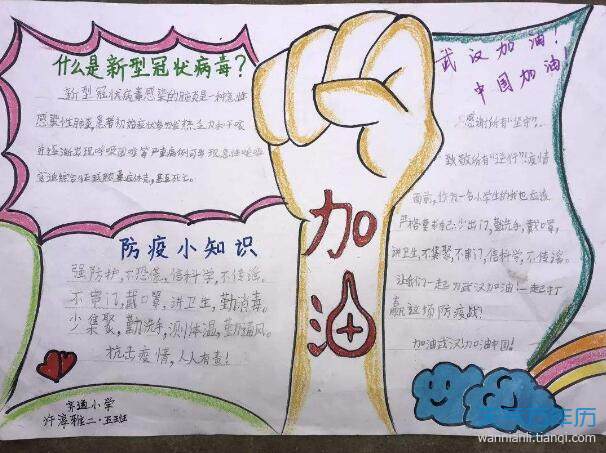 什么是新型冠状病毒?
新型冠状病毒感染的肺炎是一种急性
感染性肺炎,患者初始症状多为发热、乏力和干咳
并逐渐出现呼吸困难等严重
防疫小知识
强防护,不恐慌,信科学,不传谣。
不串门,戴口罩,讲卫生,勤消毒。
少集聚,勤洗手,测体温,
抗击疫情,人人有责!
加油
武汉加油!
中国加油!
感谢所有"坚守",
致敬所有"逆行"!疫情
面前,作为一名小学生的我也应该
严格要求自己,少出门,勤洗手,戴口罩,
讲卫生,不集聚,不串门,信科学,不传谣。
让我们一起为武汉加油!一起打
赢这场防疫战!
加油武汉!加油中国!
小学
二·五班
天天万年历
wannianli.tianqi.com